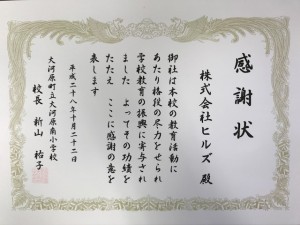 感謝状
株式会社ヒルズ 殿
御社は本校の教育活動に
あたり格段の尽力をせられ
学校教育の振興に寄与され
ました よってその功績を
たたえ ここに感謝の意を
表します
平成二十八年十月二十二日
大河原町立大河原南小学校
校長 新山 裕子